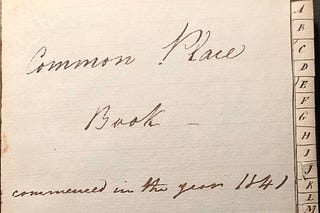 Common Place
Book –
commenced in the year 1841
A
B
C
D
E
F
G
H
I
J
K
L
M